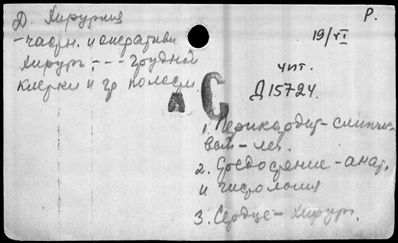 Д. Хирургия
- частн. и оперативн.
Хирург. - - - грудной
клетки и гр. полости
Р.
19/VI
чит.
Д15724.
А С
1. Перикардит - слипчи-
вый - леч.
2. Средостение - анат.
и гистология
3. Сердце - Хирург.